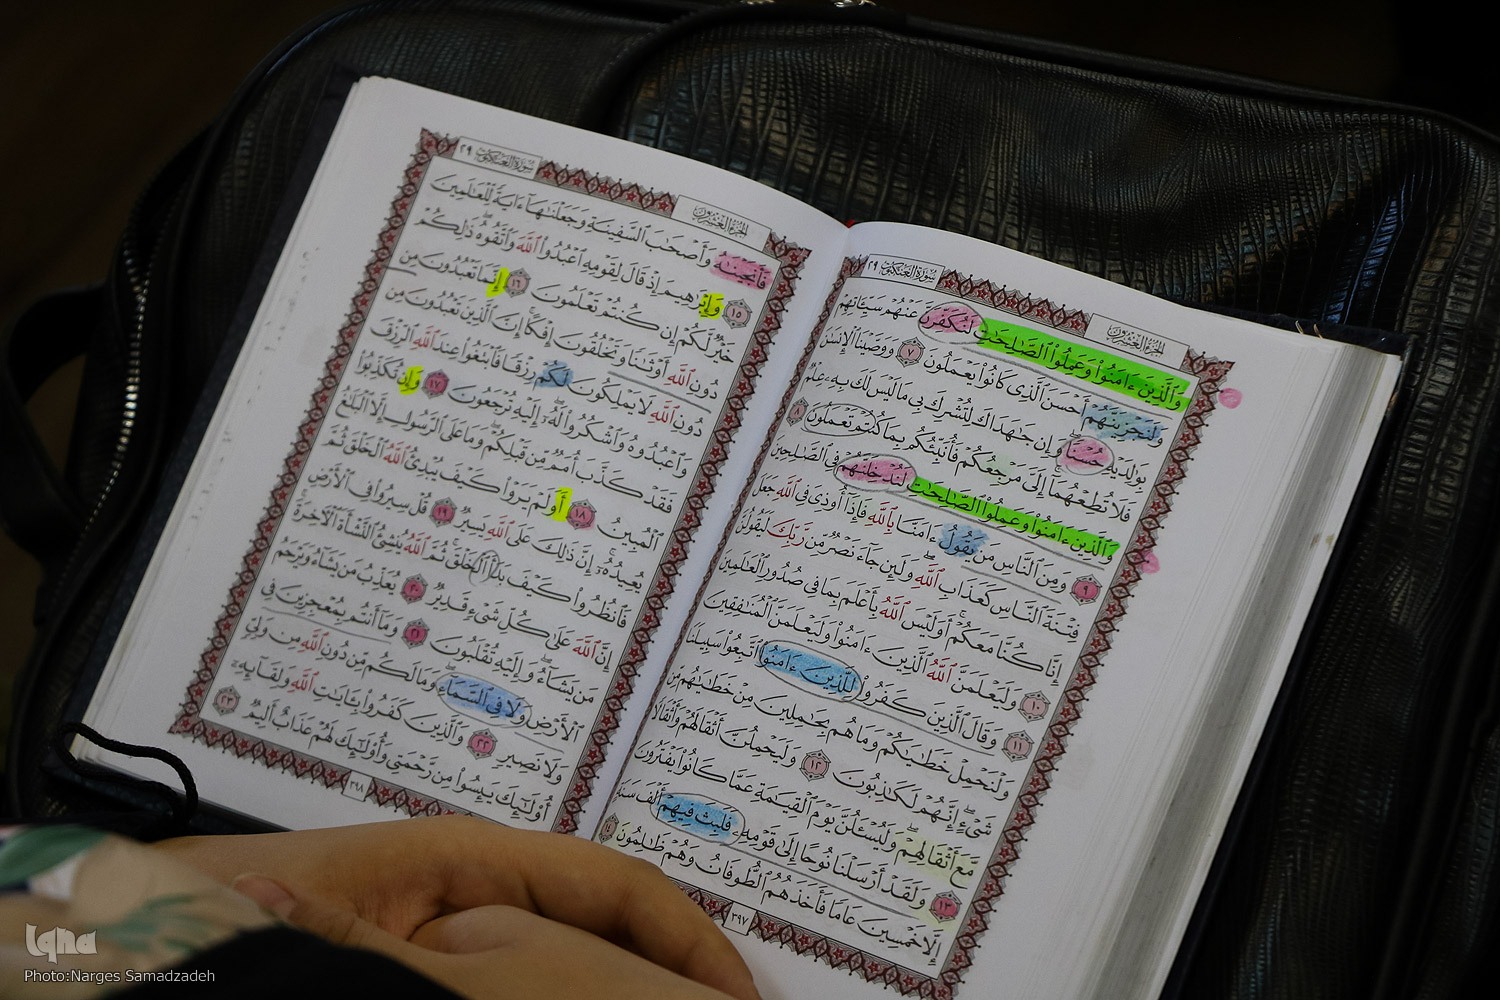 الجزء العشرون
سورة العنكبوت ٢٩
وَٱلَّذِينَ ءَامَنُوا۟ وَعَمِلُوا۟ ٱلصَّـٰلِحَـٰتِ لَنُكَفِّرَنَّ عَنْهُمْ سَيِّـَٔاتِهِمْ
وَلَنَجْزِيَنَّهُمْ أَحْسَنَ ٱلَّذِى كَانُوا۟ يَعْمَلُونَ ٧ وَوَصَّيْنَا ٱلْإِنسَـٰنَ
بِوَٰلِدَيْهِ حُسْنًا وَإِن جَـٰهَدَاكَ لِتُشْرِكَ بِى مَا لَيْسَ لَكَ بِهِۦ عِلْمٌ
فَلَا تُطِعْهُمَآ إِلَىَّ مَرْجِعُكُمْ فَأُنَبِّئُكُم بِمَا كُنتُمْ تَعْمَلُونَ ٨
وَٱلَّذِينَ ءَامَنُوا۟ وَعَمِلُوا۟ ٱلصَّـٰلِحَـٰتِ لَنُدْخِلَنَّهُمْ فِى ٱلصَّـٰلِحِينَ
٩ وَمِنَ ٱلنَّاسِ مَن يَقُولُ ءَامَنَّا بِٱللَّهِ فَإِذَآ أُوذِىَ فِى ٱللَّهِ جَعَلَ
فِتْنَةَ ٱلنَّاسِ كَعَذَابِ ٱللَّهِ وَلَئِن جَآءَ نَصْرٌ مِّن رَّبِّكَ لَيَقُولُنَّ
إِنَّا كُنَّا مَعَكُمْ أَوَلَيْسَ ٱللَّهُ بِأَعْلَمَ بِمَا فِى صُدُورِ ٱلْعَـٰلَمِينَ
١٠ وَلَيَعْلَمَنَّ ٱللَّهُ ٱلَّذِينَ ءَامَنُوا۟ وَلَيَعْلَمَنَّ ٱلْمُنَـٰفِقِينَ
١١ وَقَالَ ٱلَّذِينَ كَفَرُوا۟ لِلَّذِينَ ءَامَنُوا۟ ٱتَّبِعُوا۟ سَبِيلَنَا
وَلْنَحْمِلْ خَطَـٰيَـٰكُمْ وَمَا هُم بِحَـٰمِلِينَ مِنْ خَطَـٰيَـٰهُم مِّن
شَىْءٍ إِنَّهُمْ لَكَـٰذِبُونَ ١٢ وَلَيَحْمِلُنَّ أَثْقَالَهُمْ وَأَثْقَالًا
مَّعَ أَثْقَالِهِمْ وَلَيُسْـَٔلُنَّ يَوْمَ ٱلْقِيَـٰمَةِ عَمَّا كَانُوا۟ يَفْتَرُونَ
١٣ وَلَقَدْ أَرْسَلْنَا نُوحًا إِلَىٰ قَوْمِهِۦ فَلَبِثَ فِيهِمْ أَلْفَ سَنَةٍ
إِلَّا خَمْسِينَ عَامًا فَأَخَذَهُمُ ٱلطُّوفَانُ وَهُمْ ظَـٰلِمُونَ ١٤
٣٩٧
الجزء العشرون
سورة العنكبوت ٢٩
فَأَنجَيْنَـٰهُ وَأَصْحَـٰبَ ٱلسَّفِينَةِ وَجَعَلْنَـٰهَآ ءَايَةً لِّلْعَـٰلَمِينَ
١٥ وَإِبْرَٰهِيمَ إِذْ قَالَ لِقَوْمِهِ ٱعْبُدُوا۟ ٱللَّهَ وَٱتَّقُوهُ ذَٰلِكُمْ
خَيْرٌ لَّكُمْ إِن كُنتُمْ تَعْلَمُونَ ١٦ إِنَّمَا تَعْبُدُونَ مِن
دُونِ ٱللَّهِ أَوْثَـٰنًا وَتَخْلُقُونَ إِفْكًا إِنَّ ٱلَّذِينَ تَعْبُدُونَ مِن
دُونِ ٱللَّهِ لَا يَمْلِكُونَ لَكُمْ رِزْقًا فَٱبْتَغُوا۟ عِندَ ٱللَّهِ ٱلرِّزْقَ
وَٱعْبُدُوهُ وَٱشْكُرُوا۟ لَهُۥٓ إِلَيْهِ تُرْجَعُونَ ١٧ وَإِن تُكَذِّبُوا۟
فَقَدْ كَذَّبَ أُمَمٌ مِّن قَبْلِكُمْ وَمَا عَلَى ٱلرَّسُولِ إِلَّا ٱلْبَلَـٰغُ
ٱلْمُبِينُ ١٨ أَوَلَمْ يَرَوْا۟ كَيْفَ يُبْدِئُ ٱللَّهُ ٱلْخَلْقَ ثُمَّ
يُعِيدُهُۥٓ إِنَّ ذَٰلِكَ عَلَى ٱللَّهِ يَسِيرٌ ١٩ قُلْ سِيرُوا۟ فِى ٱلْأَرْضِ
فَٱنظُرُوا۟ كَيْفَ بَدَأَ ٱلْخَلْقَ ثُمَّ ٱللَّهُ يُنشِئُ ٱلنَّشْأَةَ ٱلْـَٔاخِرَةَ
إِنَّ ٱللَّهَ عَلَىٰ كُلِّ شَىْءٍ قَدِيرٌ ٢٠ يُعَذِّبُ مَن يَشَآءُ وَيَرْحَمُ
مَن يَشَآءُ وَإِلَيْهِ تُقْلَبُونَ ٢١ وَمَآ أَنتُم بِمُعْجِزِينَ فِى
ٱلْأَرْضِ وَلَا فِى ٱلسَّمَآءِ وَمَا لَكُم مِّن دُونِ ٱللَّهِ مِن وَلِىٍّ
وَلَا نَصِيرٍ ٢٢ وَٱلَّذِينَ كَفَرُوا۟ بِـَٔايَـٰتِ ٱللَّهِ وَلِقَآئِهِۦٓ
أُو۟لَـٰٓئِكَ يَئِسُوا۟ مِن رَّحْمَتِى وَأُو۟لَـٰٓئِكَ لَهُمْ عَذَابٌ أَلِيمٌ ٢٣
٣٩٨
Iqna
Photo:Narges Samadzadeh